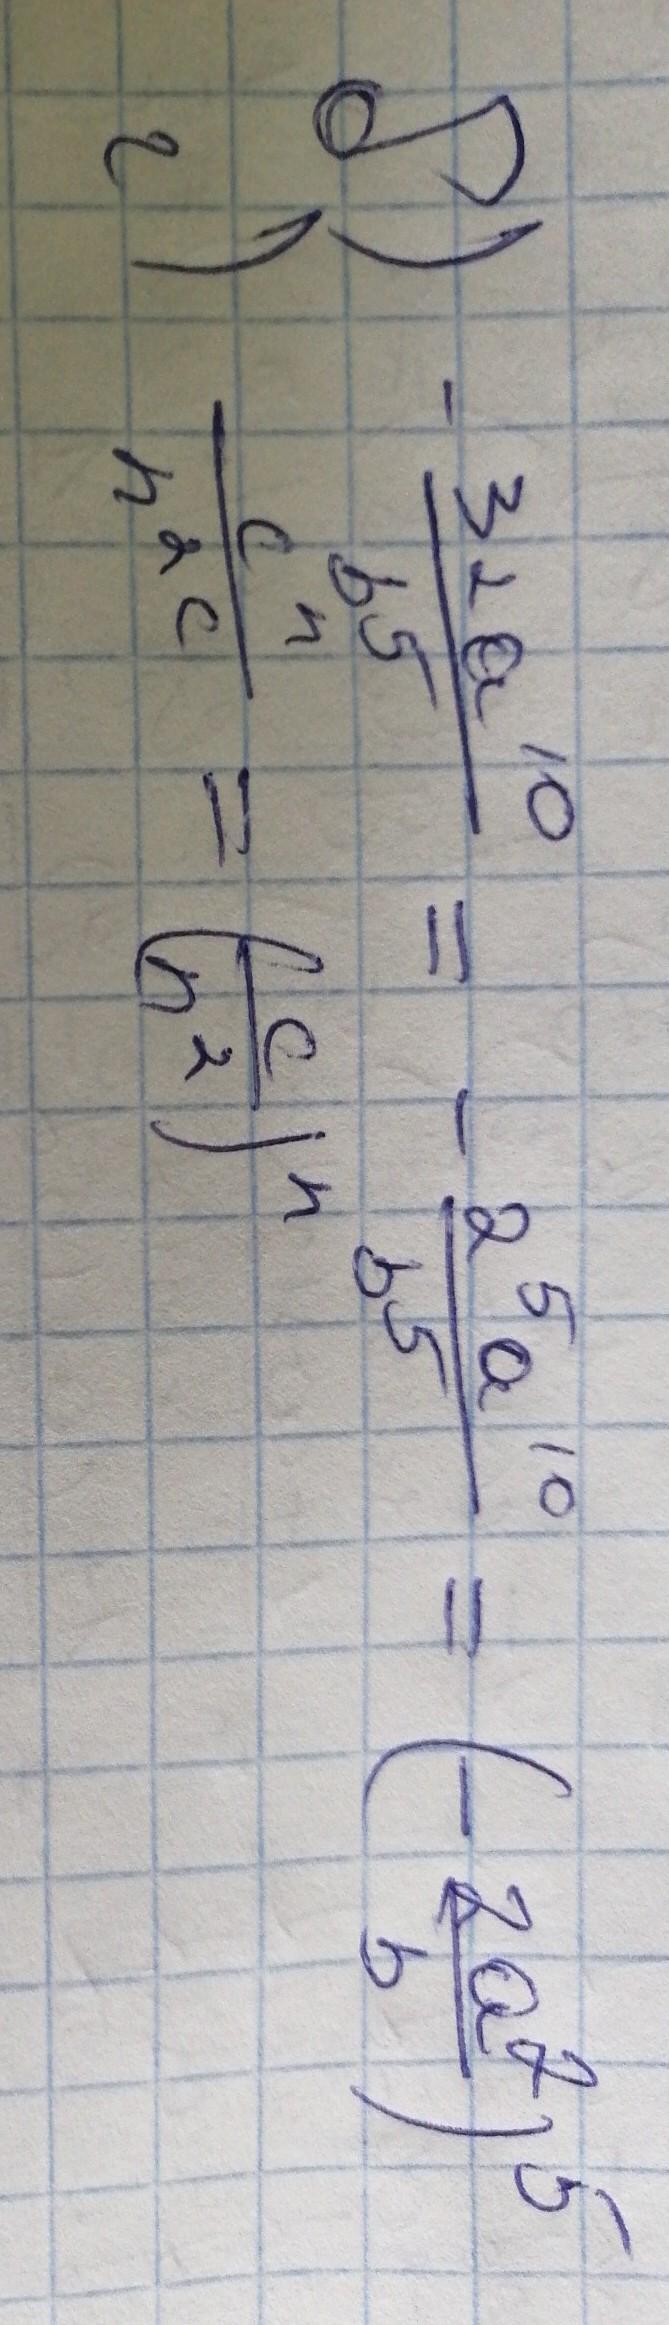 б) - 32a^10 / b^5 = - 2^5 a^10 / b^5 = (- 2a^2 / b)^5
г) c^n / n^2c = (c / n^2)^n